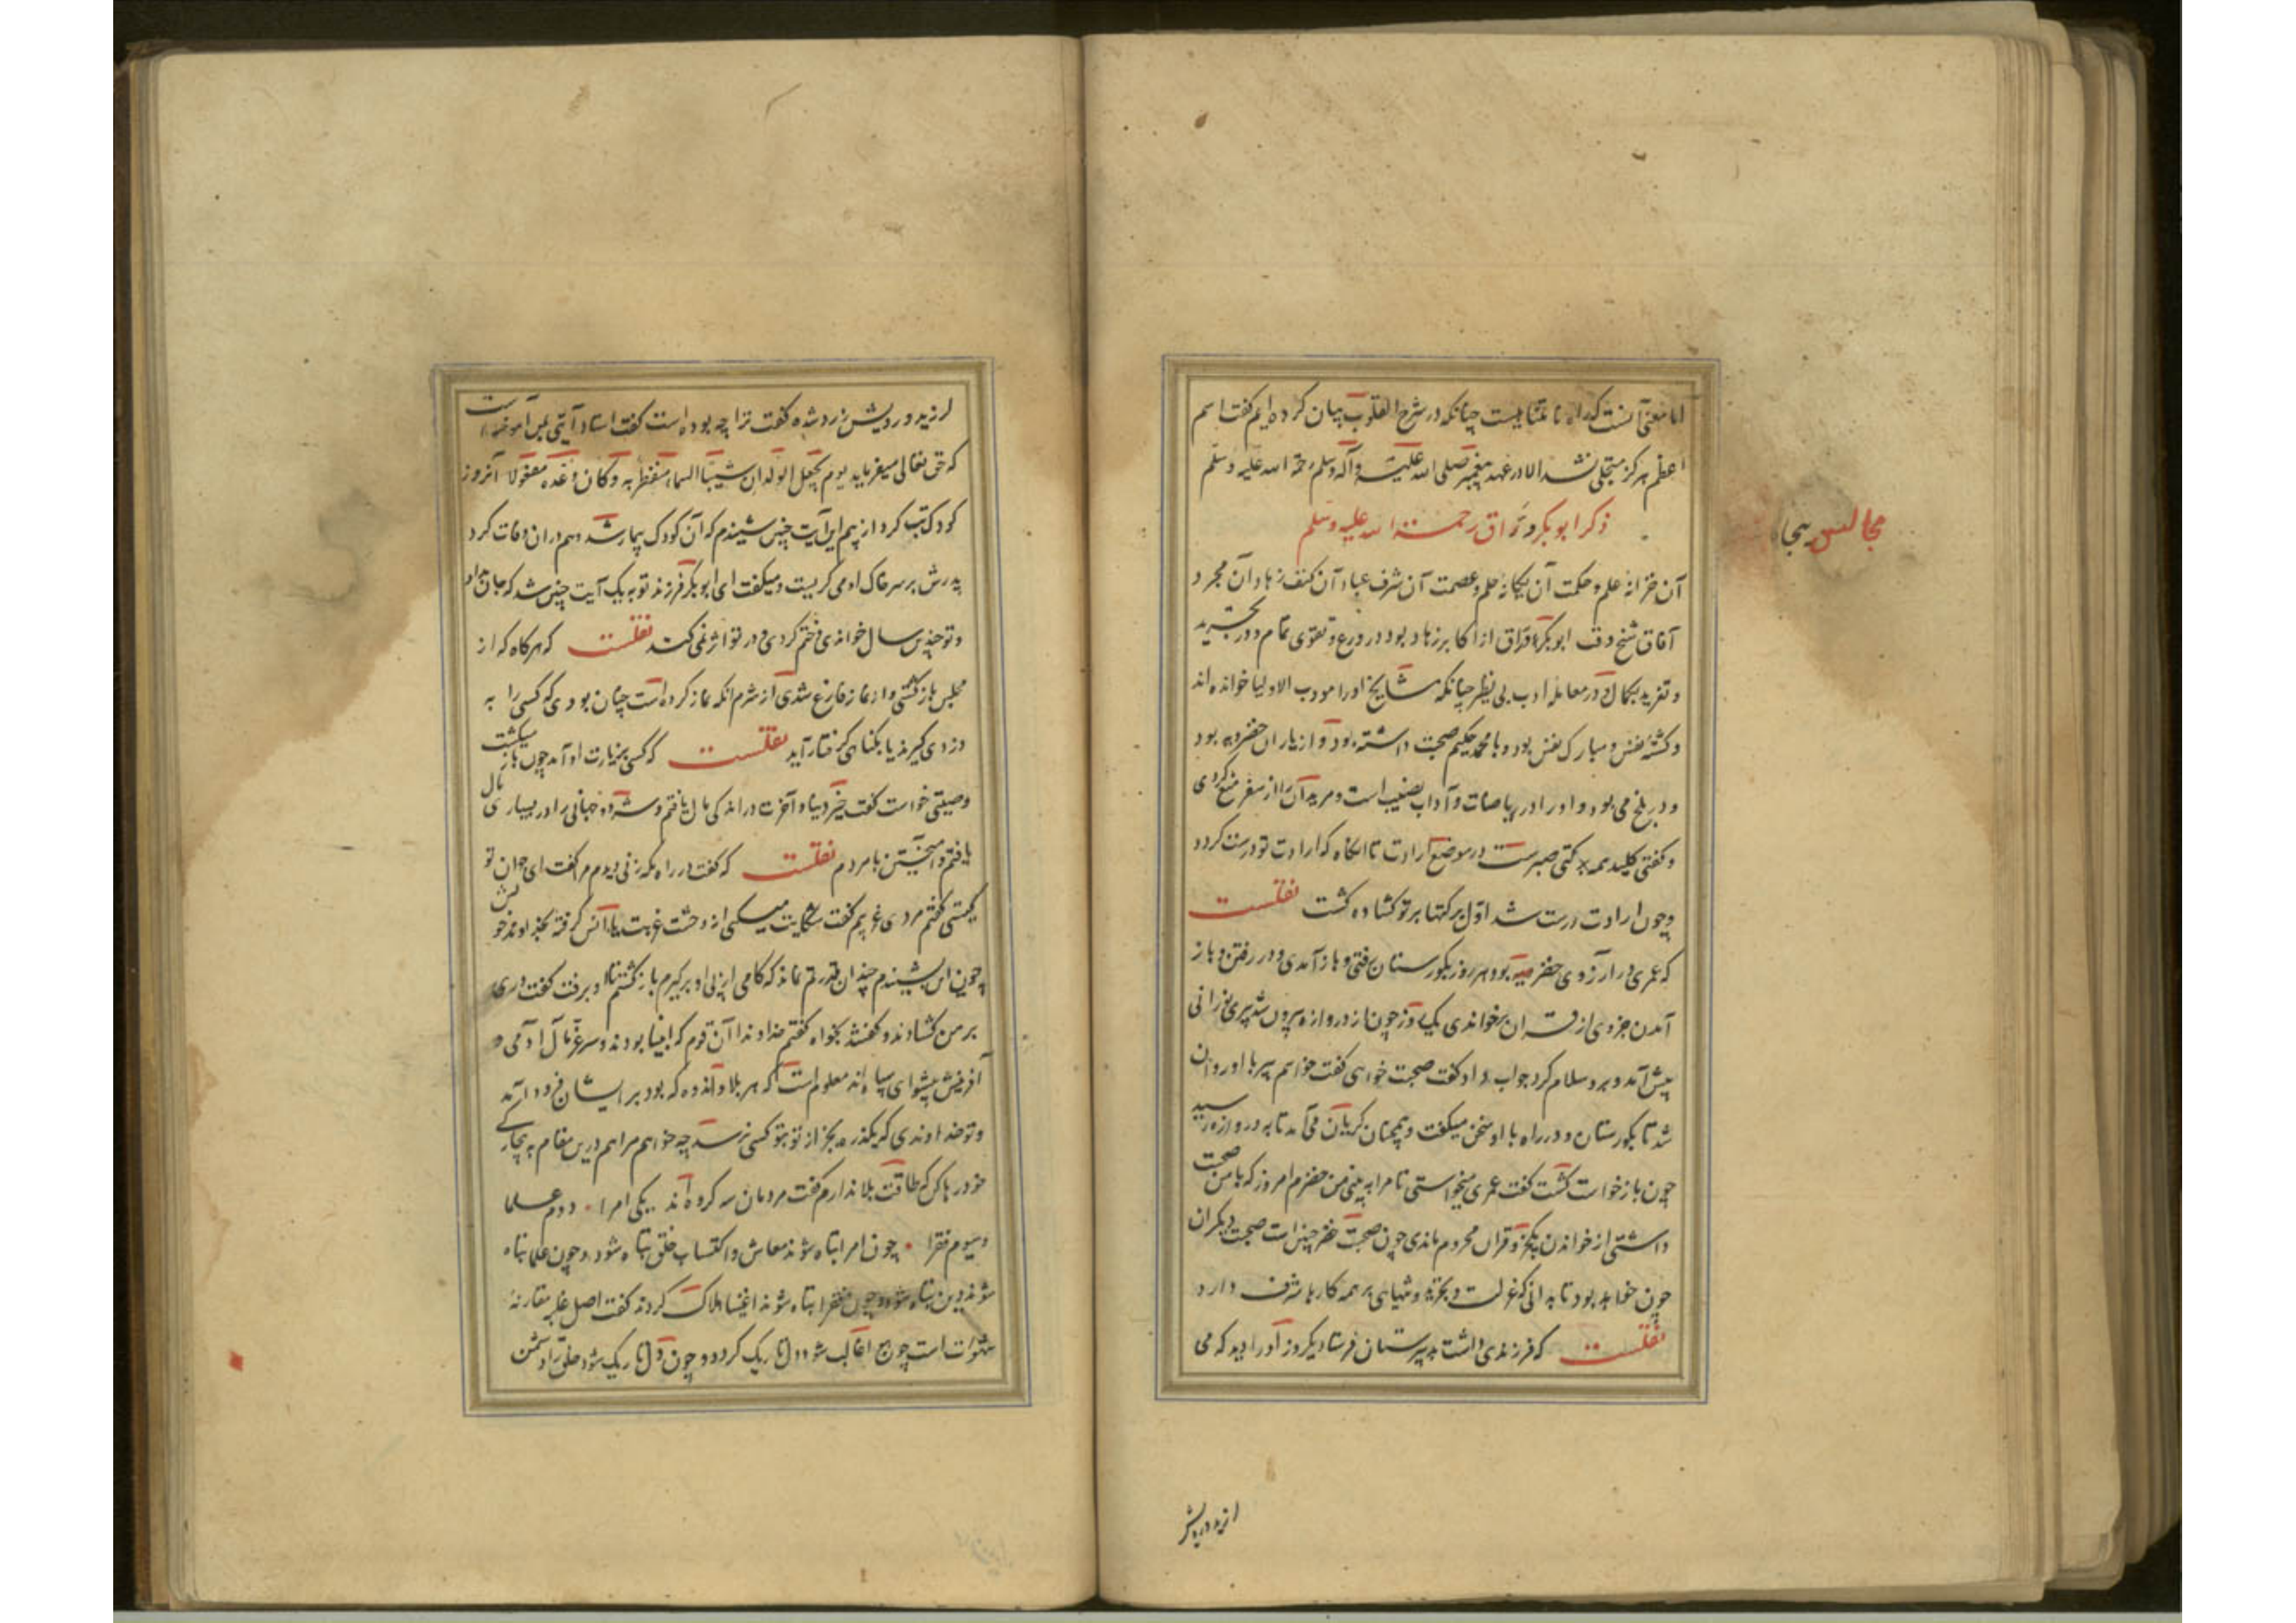 اما معنی آنست که راه نا متناهیست چنانکه در شرح القلوب بیان کرده ایم گفت اسم
اعظم هرگز متجلی نشد الا در عهد پیغمبر صلی الله علیه و آله وسلم رحمة الله علیه وسلم
ذکر ابوبکر وراق رحمة الله علیه وسلم
مجالس پنجا
آن خزانه علم و حکمت آن یگانه حلم و عصمت آن شرف عباد آن کنف زهاد آن مجرد
آفاق شیخ وقت ابوبکر وراق از اکابر زهاد بود در ورع و تقوی تمام و در تجرید
و تفرید بکمال و در معامله ادب بی نظیر چنانکه مشایخ او را مودب الاولیا خوانده اند
و کشته نفس و مبارک نفس بود و با محمد حکیم صحبت داشته بود و از یاران خضرویه بود
و در بلخ می بود و او را در ریاضات و آداب تصنیف است و مریدان را از سفر منع کردی
و گفتی کلید همه برکتی صبرست در موضع ارادت تا آنگاه که ارادت تو درست گردد
و چون ارادت درست شد اول برکتها بر تو گشاده گشت نقلست
که عمری در آرزوی خضر بود هر روز بگورستان رفتی و باز آمدی و در رفتن و باز
آمدن جزوی از قران برخواندی یک روز چون از دروازه بیرون شد پیری نورانی
پیش آمد و برو سلام کرد جواب داد گفت صحبت خواهی گفت خواهم پیر با او روان
شد تا بگورستان و در راه با او سخن میگفت و همچنان گریان می آمد تا به دروازه رسید
چون باز خواست گشت گفت عمری میخواستی تا مرا به بینی من خضرم امروز که با من صحبت
داشتی از خواندن یکجزو قران محروم ماندی چون صحبت خضر چنین است صحبت دیگران
چون خواهد بود تا بدانی که عزلت و تجرید و تنهایی بر همه کارها شرف دارد
نقلست که فرزندی داشت بدبیرستان فرستاد یکروز او را دید که می
لرزید و رویش
لرزید و رویش زرد شده گفت ترا چه بوده است گفت استاد آیتی بمن آموخته است
که حق تعالی میفرماید یوم یجعل الولدان شیبا السماء منفطر به و کان وعده مفعولا آنروز
کودک تب کرد از بیم این آیت چنین شنیدم که آن کودک بیمار شد و هم دران وفات کرد
پدرش بر سر خاک او می گریست و میگفت ای ابوبکر فرزند تو به یک آیت چنین شد که جان داد
و تو چندین سال خواندی و ختم کردی و در تو اثر نمی کند نقلست که هرگاه که از
مجلس باز گشتی و از نماز فارغ شدی از شرم آنکه نماز کرده است چنان بودی که کسی را به
دزدی گیرند یا بگناهی گرفتار آید نقلست که کسی بزیارت او آمد چون باز میگشت
وصیتی خواست گفت خیر دنیا و آخرت در اندکی مال یافتم و شر دو جهانی را در بسیاری مال
یافتم و آمیختن با مردم نقلست که گفت در راه مکه زنی دیدم مرا گفت ای جوان تو
کیستی گفتم مردی غریبم گفت شکایت میکنی از وحشت غربت یا انس گرفته بخداوند خویش
چون این بشنیدم چندان قدرتم نماند که گامی از پی او برگیرم باز گشتم او برفت گفت دری
بر من گشادند و گفتند بخواه گفتم خداوندا آن قوم که انبیا بودند و سرغوغای
آفرینش و پیشوای سپاه اند معلوم است که هر بلا و اندوه که بود بر ایشان فرود آمد
و تو خداوندی که یکذره بجز از تو بتو کسی نرسد چه خواهم مرا هم درین مقام به بیچارگی
خود رها کن که طاقت بلا ندارم گفت مردمان سه گروه اند یکی امرا دوم علما
و سیوم فقرا چون امرا تباه شوند معاش و اکتساب خلق تباه شود و چون علما تباه
شوند دین تباه شود و چون فقرا تباه شوند اغنیا هلاک گردند گفت اصل غلبه مقارنه
شهوت است چون هوا غالب شود دل تاریک گردد و چون دل تاریک شود خلق را دشمن